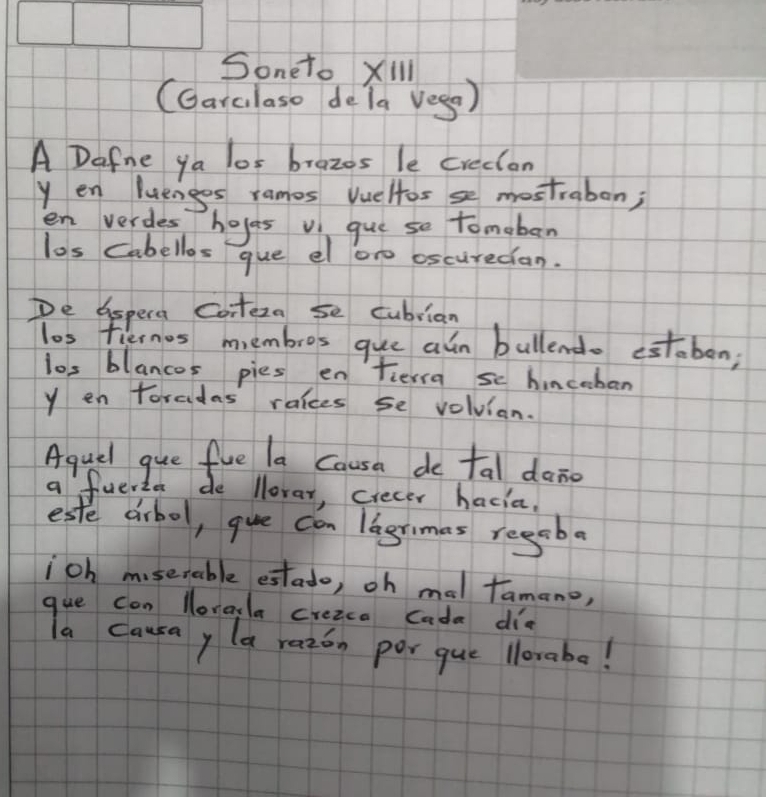 Soneto XIII
(Garcilaso de la Vega)
A Dafne ya los brazos le crecían
y en luengos ramos vueltos se mostraban;
en verdes hojas vi que se tomaban
los cabellos que el oro oscurecían.
De áspera corteza se cubrían
los tiernos miembros que aún bullendo estaban;
los blancos pies en tierra se hincaban
y en torcidas raíces se volvían.
Aquel que fue la causa de tal daño
a fuerza de llorar, crecer hacía,
este árbol, que con lágrimas regaba
¡Oh miserable estado, oh mal tamano,
que con llorarla crezca cada día
la causa y la razón por que lloraba!